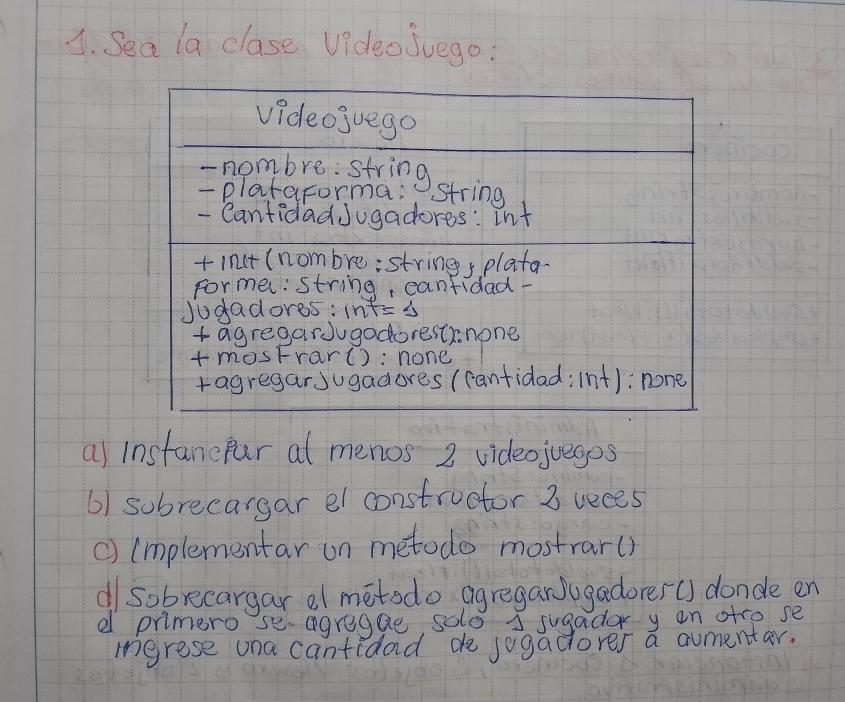 1. Sea la clase Videojuego:
Videojuego
- nombre: string
- plataforma: string
- Cantidadjugadores: int
+ init (nombre: string, plata-
forma: string, cantidad-
jugadores: int= 1
+ agregarJugadores(): none
+ mostrar(): none
+ agregarJugadores (cantidad: int): none
a) Instanciar al menos 2 videojuegos
b) sobrecargar el constructor 2 veces
c) Implementar un método mostrar()
d) Sobrecargar el método agregarJugadores() donde en
el primero se agregae solo 1 jugador y en otro se
ingrese una cantidad de jugadores a aumentar.